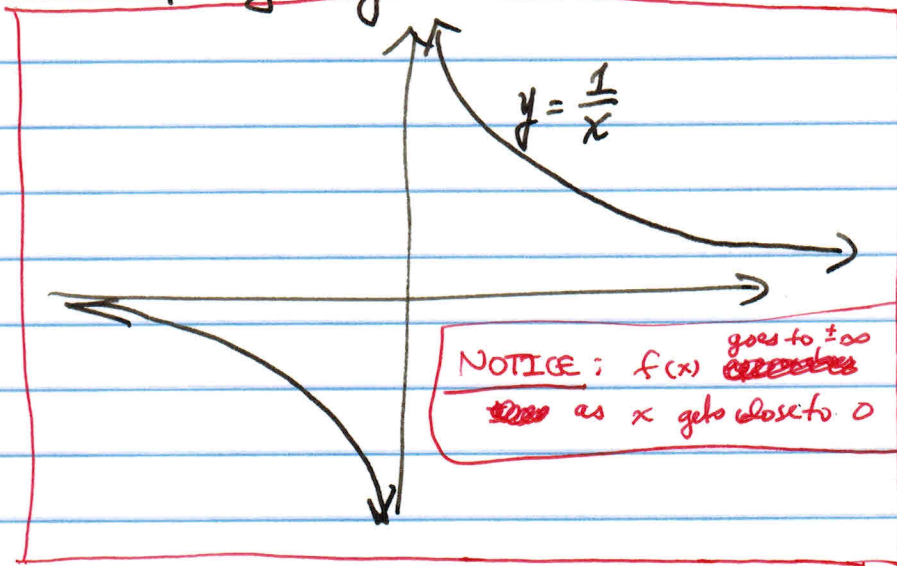 y = 1/x
NOTICE: f(x) goes to ±∞
as x gets close to 0